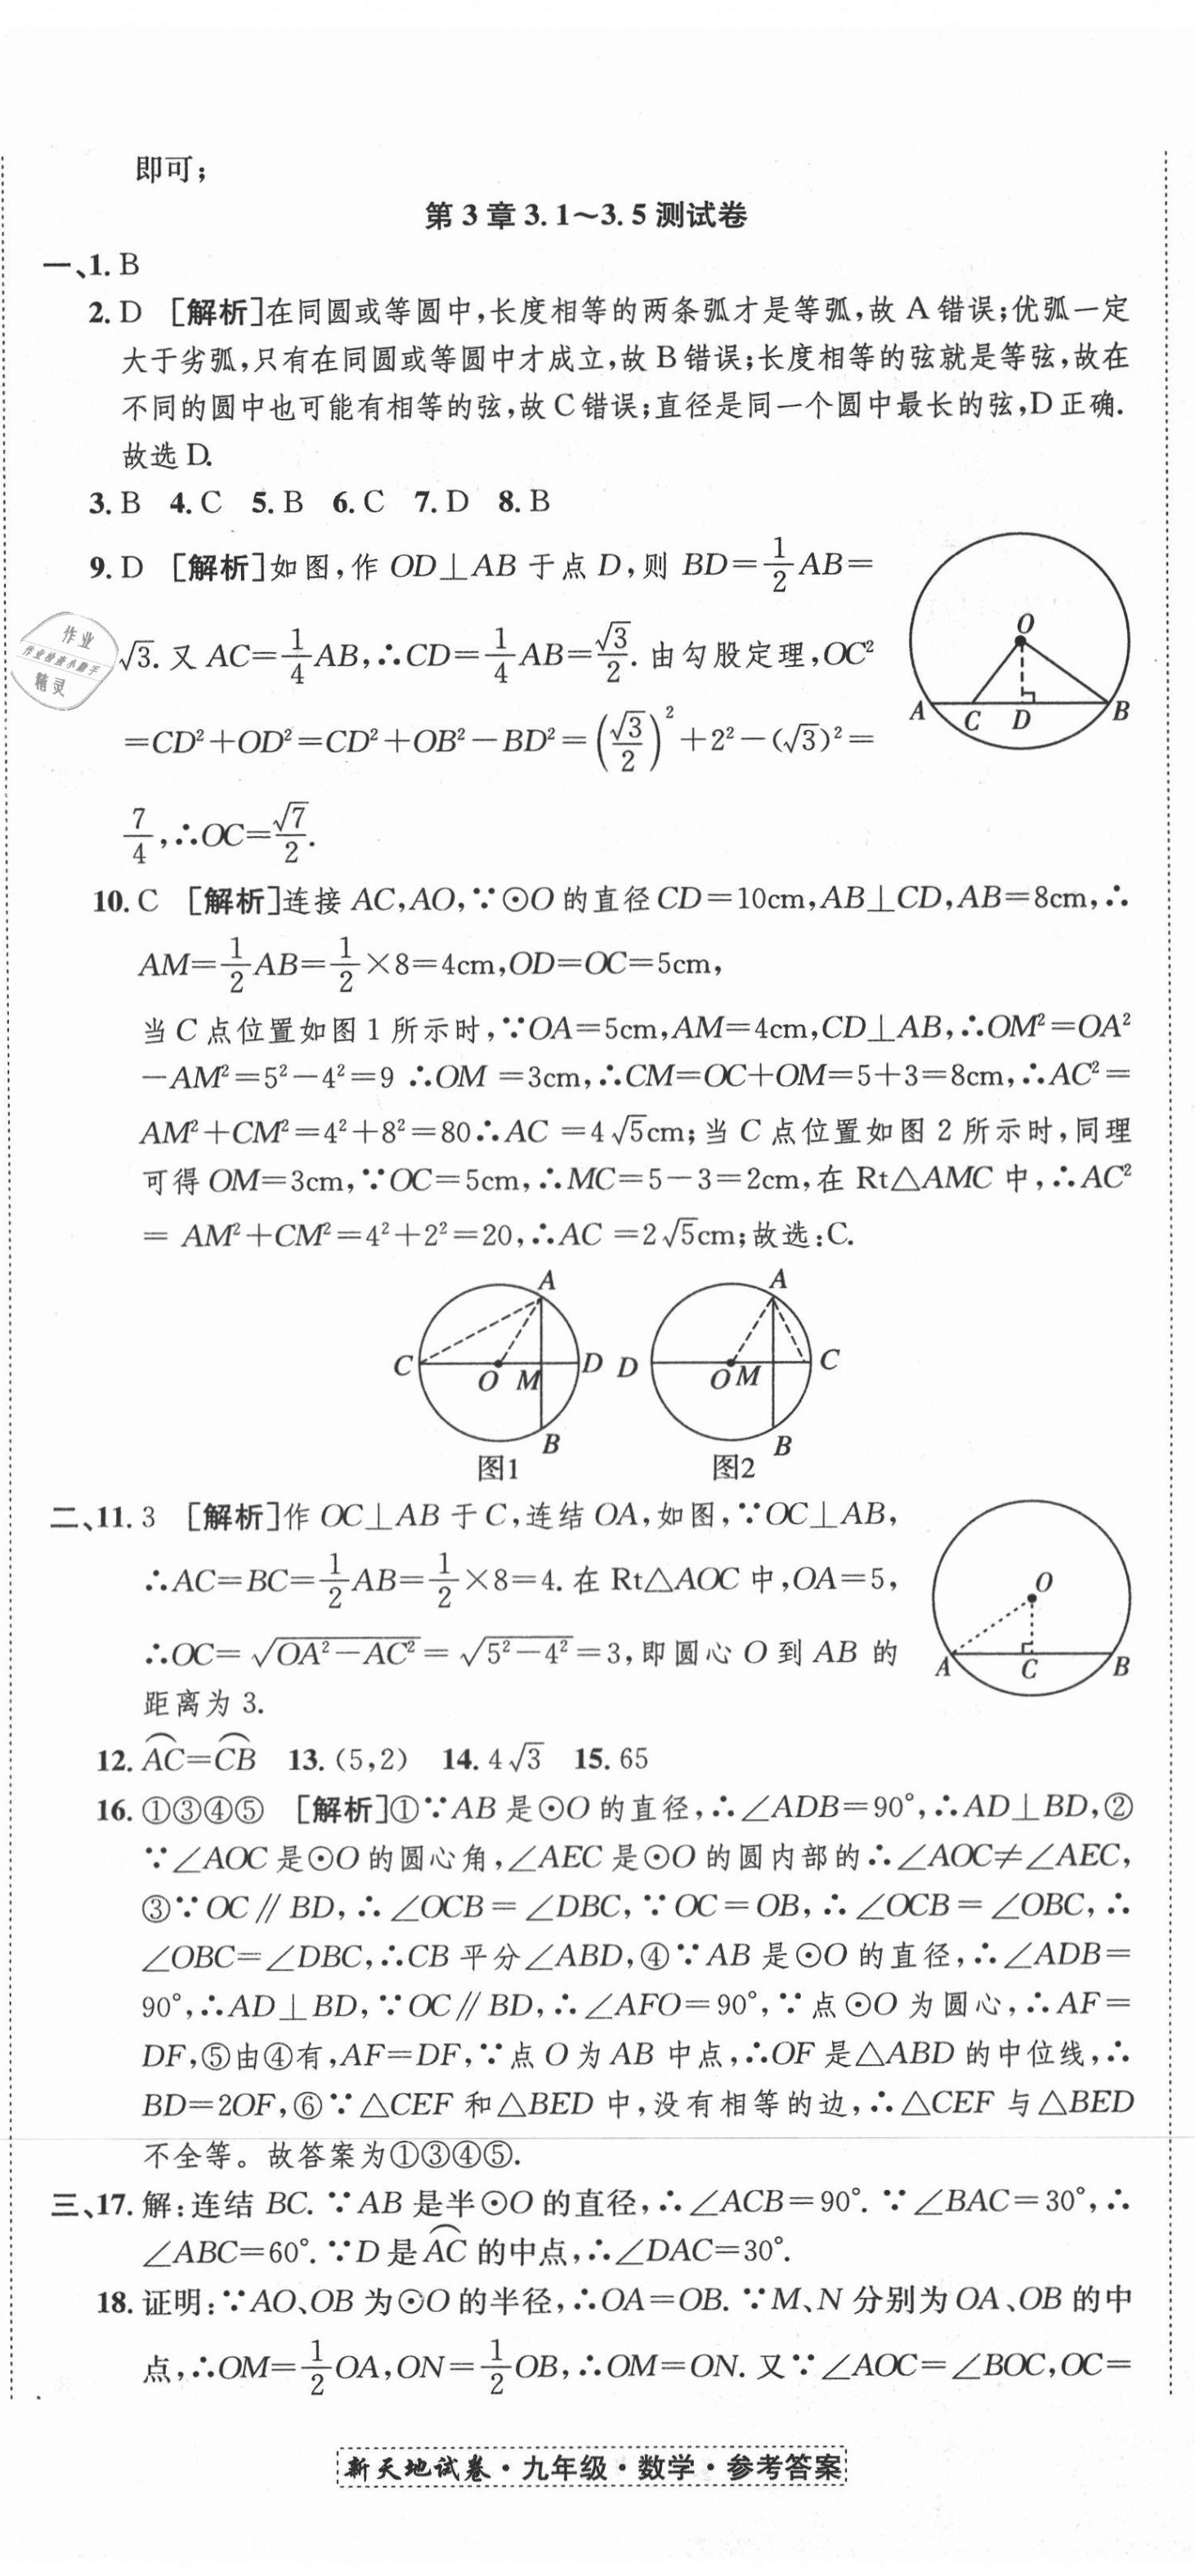 即可；
第3章3.1～3.5测试卷
一、1. B
2. D [解析]在同圆或等圆中，长度相等的两条弧才是等弧，故A错误；优弧一定
大于劣弧，只有在同圆或等圆中才成立，故B错误；长度相等的弦就是等弦，故在
不同的圆中也可能有相等的弦，故C错误；直径是同一个圆中最长的弦，D正确．
故选D.
3. B 4. C 5. B 6. C 7. D 8. B
9. D [解析]如图，作OD⊥AB于点D，则BD=1/2AB=
√3. 又AC=1/4AB，∴CD=1/4AB=√3/2. 由勾股定理，OC²
=CD²+OD²=CD²+OB²−BD²=(√3/2)²+2²−(√3)²=
7/4，∴OC=√7/2.
O
A C D B
作业
作业检查小助手
精灵
10. C [解析]连接AC，AO，∵⊙O的直径CD=10cm，AB⊥CD，AB=8cm，∴
AM=1/2AB=1/2×8=4cm，OD=OC=5cm，
当C点位置如图1所示时，∵OA=5cm，AM=4cm，CD⊥AB，∴OM²=OA²
−AM²=5²−4²=9 ∴OM=3cm，∴CM=OC+OM=5+3=8cm，∴AC²=
AM²+CM²=4²+8²=80∴AC=4√5cm；当C点位置如图2所示时，同理
可得OM=3cm，∵OC=5cm，∴MC=5−3=2cm，在Rt△AMC中，∴AC²
=AM²+CM²=4²+2²=20，∴AC=2√5cm；故选：C.
A A
C O M D D O M C
B B
图1 图2
二、11. 3 [解析]作OC⊥AB于C，连结OA，如图，∵OC⊥AB，
∴AC=BC=1/2AB=1/2×8=4. 在Rt△AOC中，OA=5，
∴OC=√(OA²−AC²)=√(5²−4²)=3，即圆心O到AB的
距离为3.
O
A C B
12. A͡C=C͡B 13. (5,2) 14. 4√3 15. 65
16. ①③④⑤ [解析]①∵AB是⊙O的直径，∴∠ADB=90°，∴AD⊥BD，②
∵∠AOC是⊙O的圆心角，∠AEC是⊙O的圆内部的∴∠AOC≠∠AEC，
③∵OC∥BD，∴∠OCB=∠DBC，∵OC=OB，∴∠OCB=∠OBC，∴
∠OBC=∠DBC，∴CB平分∠ABD，④∵AB是⊙O的直径，∴∠ADB=
90°，∴AD⊥BD，∵OC∥BD，∴∠AFO=90°，∵点⊙O为圆心，∴AF=
DF，⑤由④有，AF=DF，∵点O为AB中点，∴OF是△ABD的中位线，∴
BD=2OF，⑥∵△CEF和△BED中，没有相等的边，∴△CEF与△BED
不全等。故答案为①③④⑤.
三、17. 解：连结BC. ∵AB是半⊙O的直径，∴∠ACB=90°. ∵∠BAC=30°，∴
∠ABC=60°. ∵D是A͡C的中点，∴∠DAC=30°.
18. 证明：∵AO、OB为⊙O的半径，∴OA=OB. ∵M、N分别为OA、OB的中
点，∴OM=1/2OA，ON=1/2OB，∴OM=ON. 又∵∠AOC=∠BOC，OC=
新天地试卷·九年级·数学·参考答案